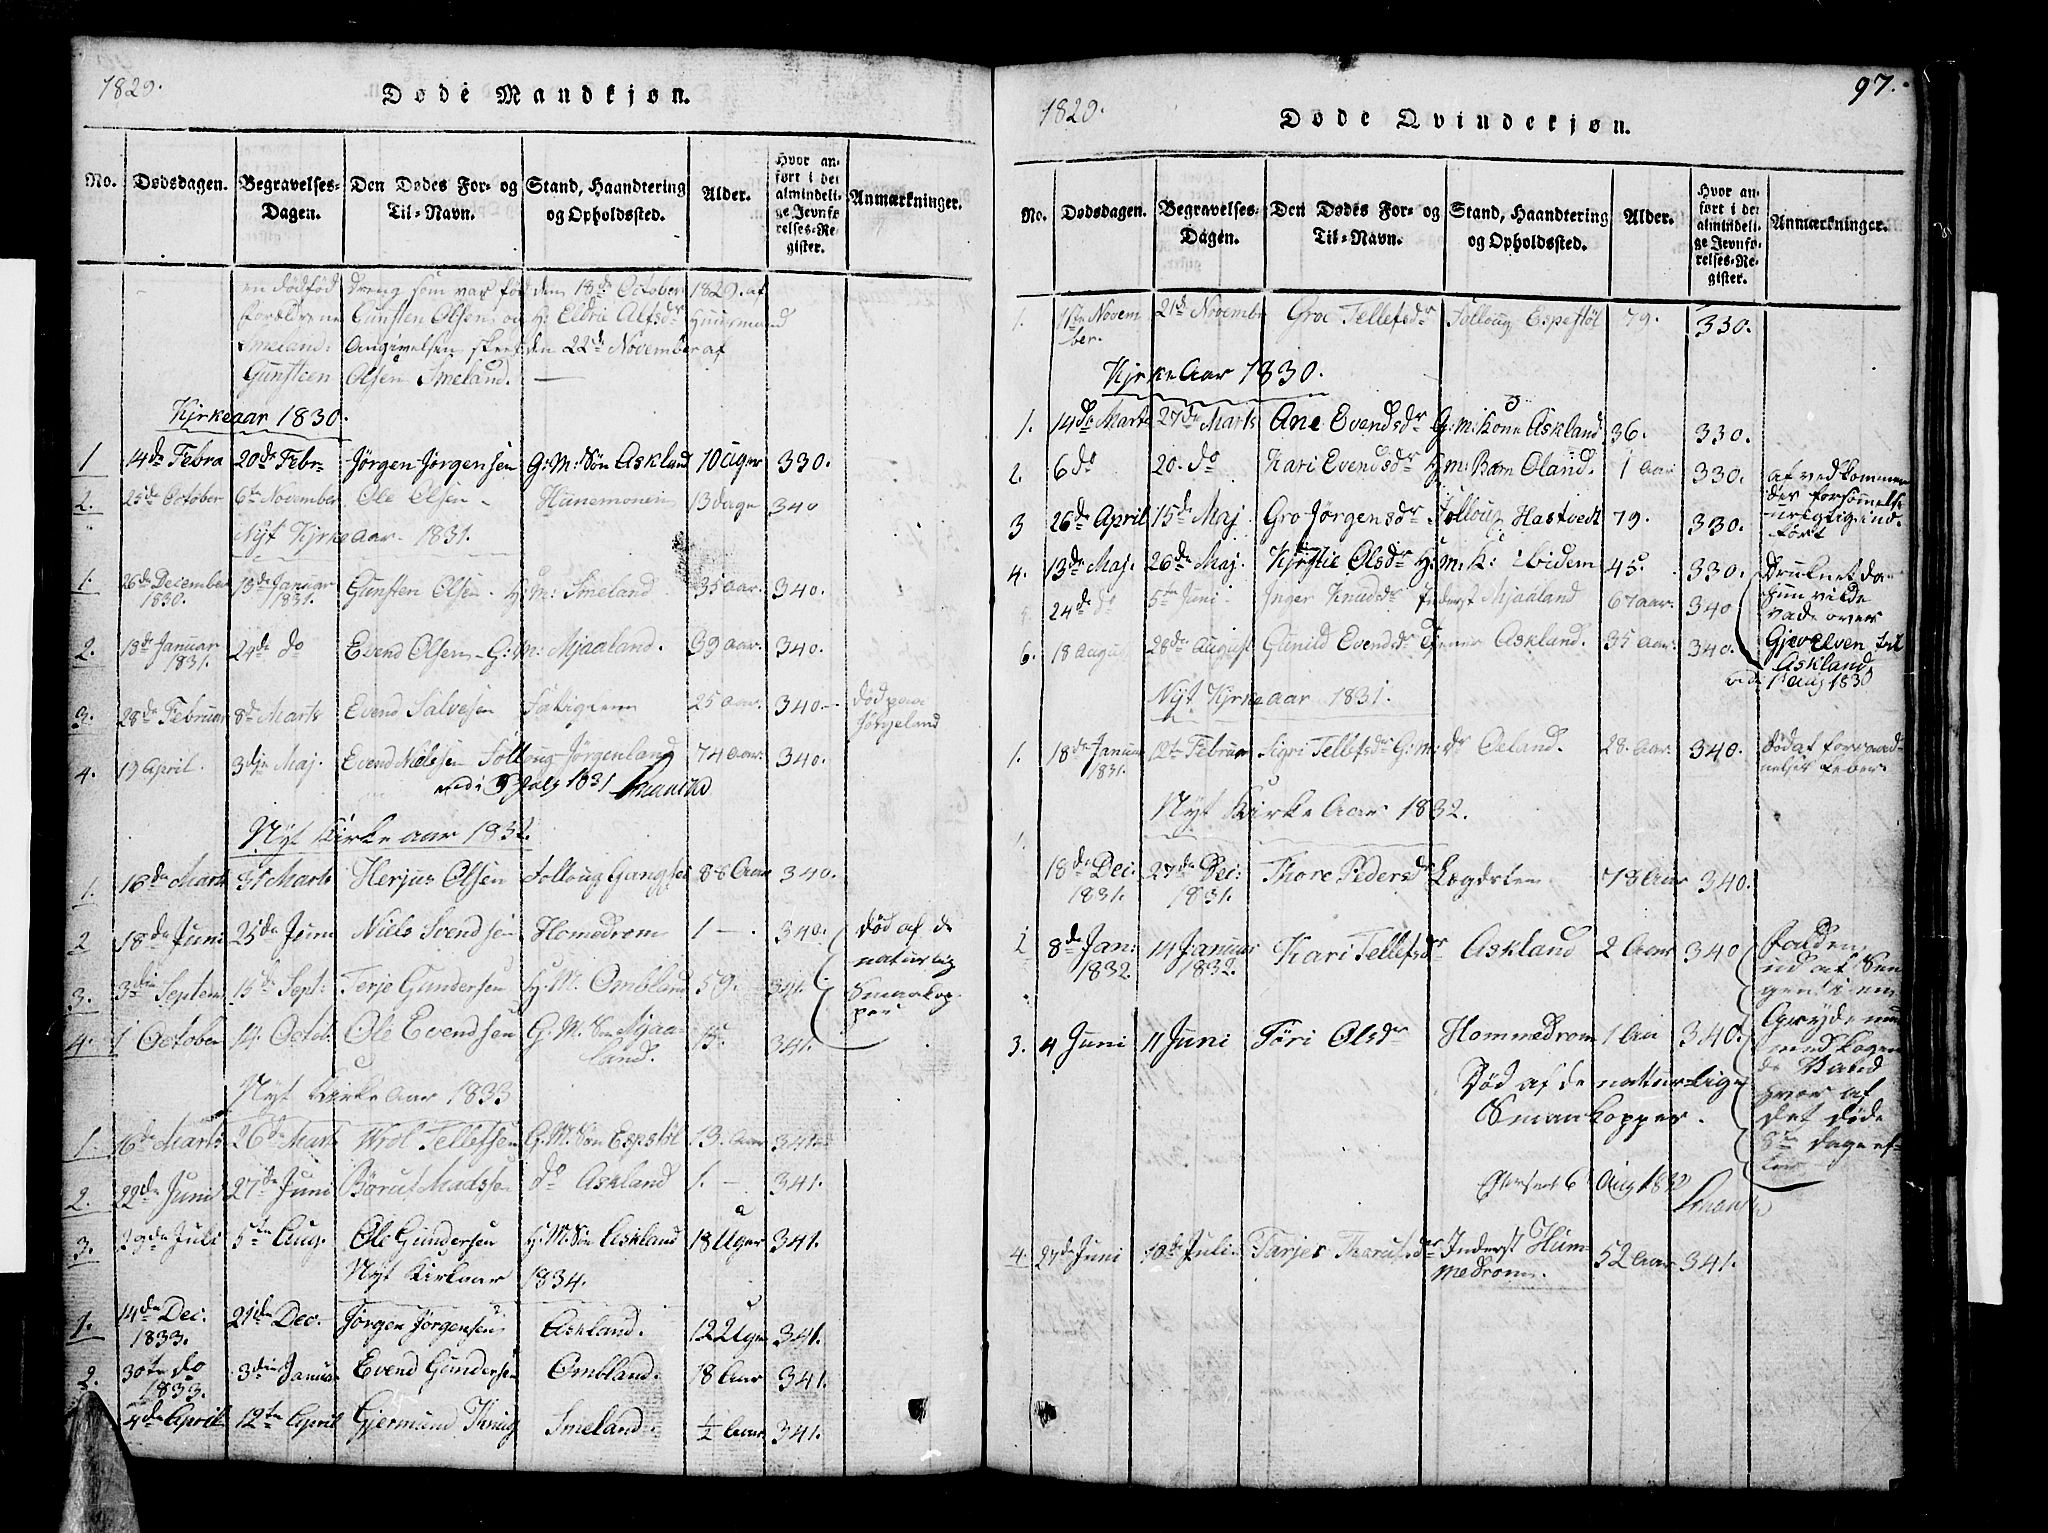 1829.
Døde Mandkjøn.
No. Dødsdagen. Begravelses-Dagen. Den Dødes For- og Til-Navn. Stand, Haandtering og Opholdssted. Alder. Hvor anført i det almindelige Jevnførelses-Register. Anmærkninger.
en dødfød Dreng som var fød den 18de October 1829. af
Forældrene Gunsten Olsen og H: Eldrie Alfsdr Huusmand
Smeland: Angivelsen skeet den 22de November af
Gunstien Olsen Smeland. —
Kjrkeaar 1830.
1 14de Febra 20de Febr Jørgen Jørgensen G: M: Søn Askland 10 uger 330.
2. 25de October 6te November Ole Olsen - Hunemonen 13 dage 340
Nÿt Kjrkeaar. 1831.
1. 26de December 1830. 13de Januar 1831. Gunsten Olsen. H: M: Smeland. 35 aar. 340.
2. 18de Januar 1831. 24de do Evend Olsen - G: M: Mjaaland. 39 aar. 340.
3. 28de Februar 8de Marts Evend Salvesen 25 aar. 340 - død paa Jørgeland
4. 19 April. 3die Maj. Evend Nielsen Folloug Jørgenland 74 aar. 340.
vedi 9 July 1831
Nÿt Kirkeaar 1832.
1. 16de Marts 31 Marts Herjus Olsen Folloug 88 Aar 340.
2 18de Juni 25de Juni Niels Svendsen Homedrom 1 - . 340. død af de naturlig Smaakopper
3. 3die Septem 15de Sept: Terje Gundersen H: M. Ombland 59. 341.
4. 1 October 14. Octob. Ole Evendsen G. M. Søn Mjaaland. 15. 341.
Nÿt Kirkeaar 1833
1. 16de Marts 26de Mart Wrol Tellefsen G. M. Søn Espstøl 13. Aar 341.
2. 22de Juni 27de Juni Børuf Madssen do Askland 1. - 341.
3. 29de Juli 5te Aug. Ole Gundersen H. M. Søn Askland 18 Uger 341.
Nÿt Kirkaar 1834.
1. 14de Dec. 1833. 21de Dec. Jørgen Jørgensen Askland. 12 Uger 341.
2. 30te do 1833. 3die Januar Evend Gundersen Ombland. 18 Aar 341.
4de April 12te April Gjermund Knug Smeland. ½ Aar. 341.
1829.
97.
Døde Qvindekjøn.
No. Dødsdagen. Begravelses-Dagen. Den Dødes For- og Til-Navn. Stand, Haandtering og Opholdssted. Alder. Hvor anført i det almindelige Jevnførelses-Register. Anmærkninger.
1. 11te November. 21de Novembr Groe Tellefsdr Folloug Espestøl 79. 330.
Kjrkeaar 1830.
1. 14de Marts 27de Marts Ane Evendsdr G: M: Kone Askland 36. 330.
2. 6 do 20. do Kari Evendsdr H: M: Barn Øland. 1 aar 330. af vedkommendes forsømmelse urigtig indført
3 26de April 15de Maj Gro Jørgensdr Folloug Hastvedt 79. 330.
4. 13de Maj. 26de Maj. Kjrstie Olsdr H: M: K: ibidem 45. 330. Druknet da hun vilde vade over Gjøvelven til Askland
24de do 5te Juni - Inger Knudsdr Inderst Mjaaland 67 aar. 340
6. 18 August 28de August Gunild Evendsdr Tjener Askland. 35 aar. 340.
vedi 1 Aug 1830
Nÿt Kjrkeaar 1831.
1. 18de Januar 1831. 12te Februar Sigri Tellefsdr G: M: dr Øeland. 28. aar. 340. død af forraadnelses feber.
Nÿt Kirkeaar 1832.
1 18de Dec: 1831. 27de Dec: 1831. Thore Pedersdr Legdslem 78 Aar 340.
2 8de Jan: 1832. 14 Januar 1832. Kari Tellefsdr Askland 2 Aar 340 Falden ud af Sengen i en Grÿde med kogende Vand hvor af det døde 8te Dage efter
3. 4 Juni 11 Juni Tøri Olsdr Hommedrom 1 Aar 340.
Død af de naturlige
Smaakopper.
Efterseet 6 Aug 1832
4. 27de Juni 10de Juli Tarjer Inderst Hummedrom. 52 Aar 341.